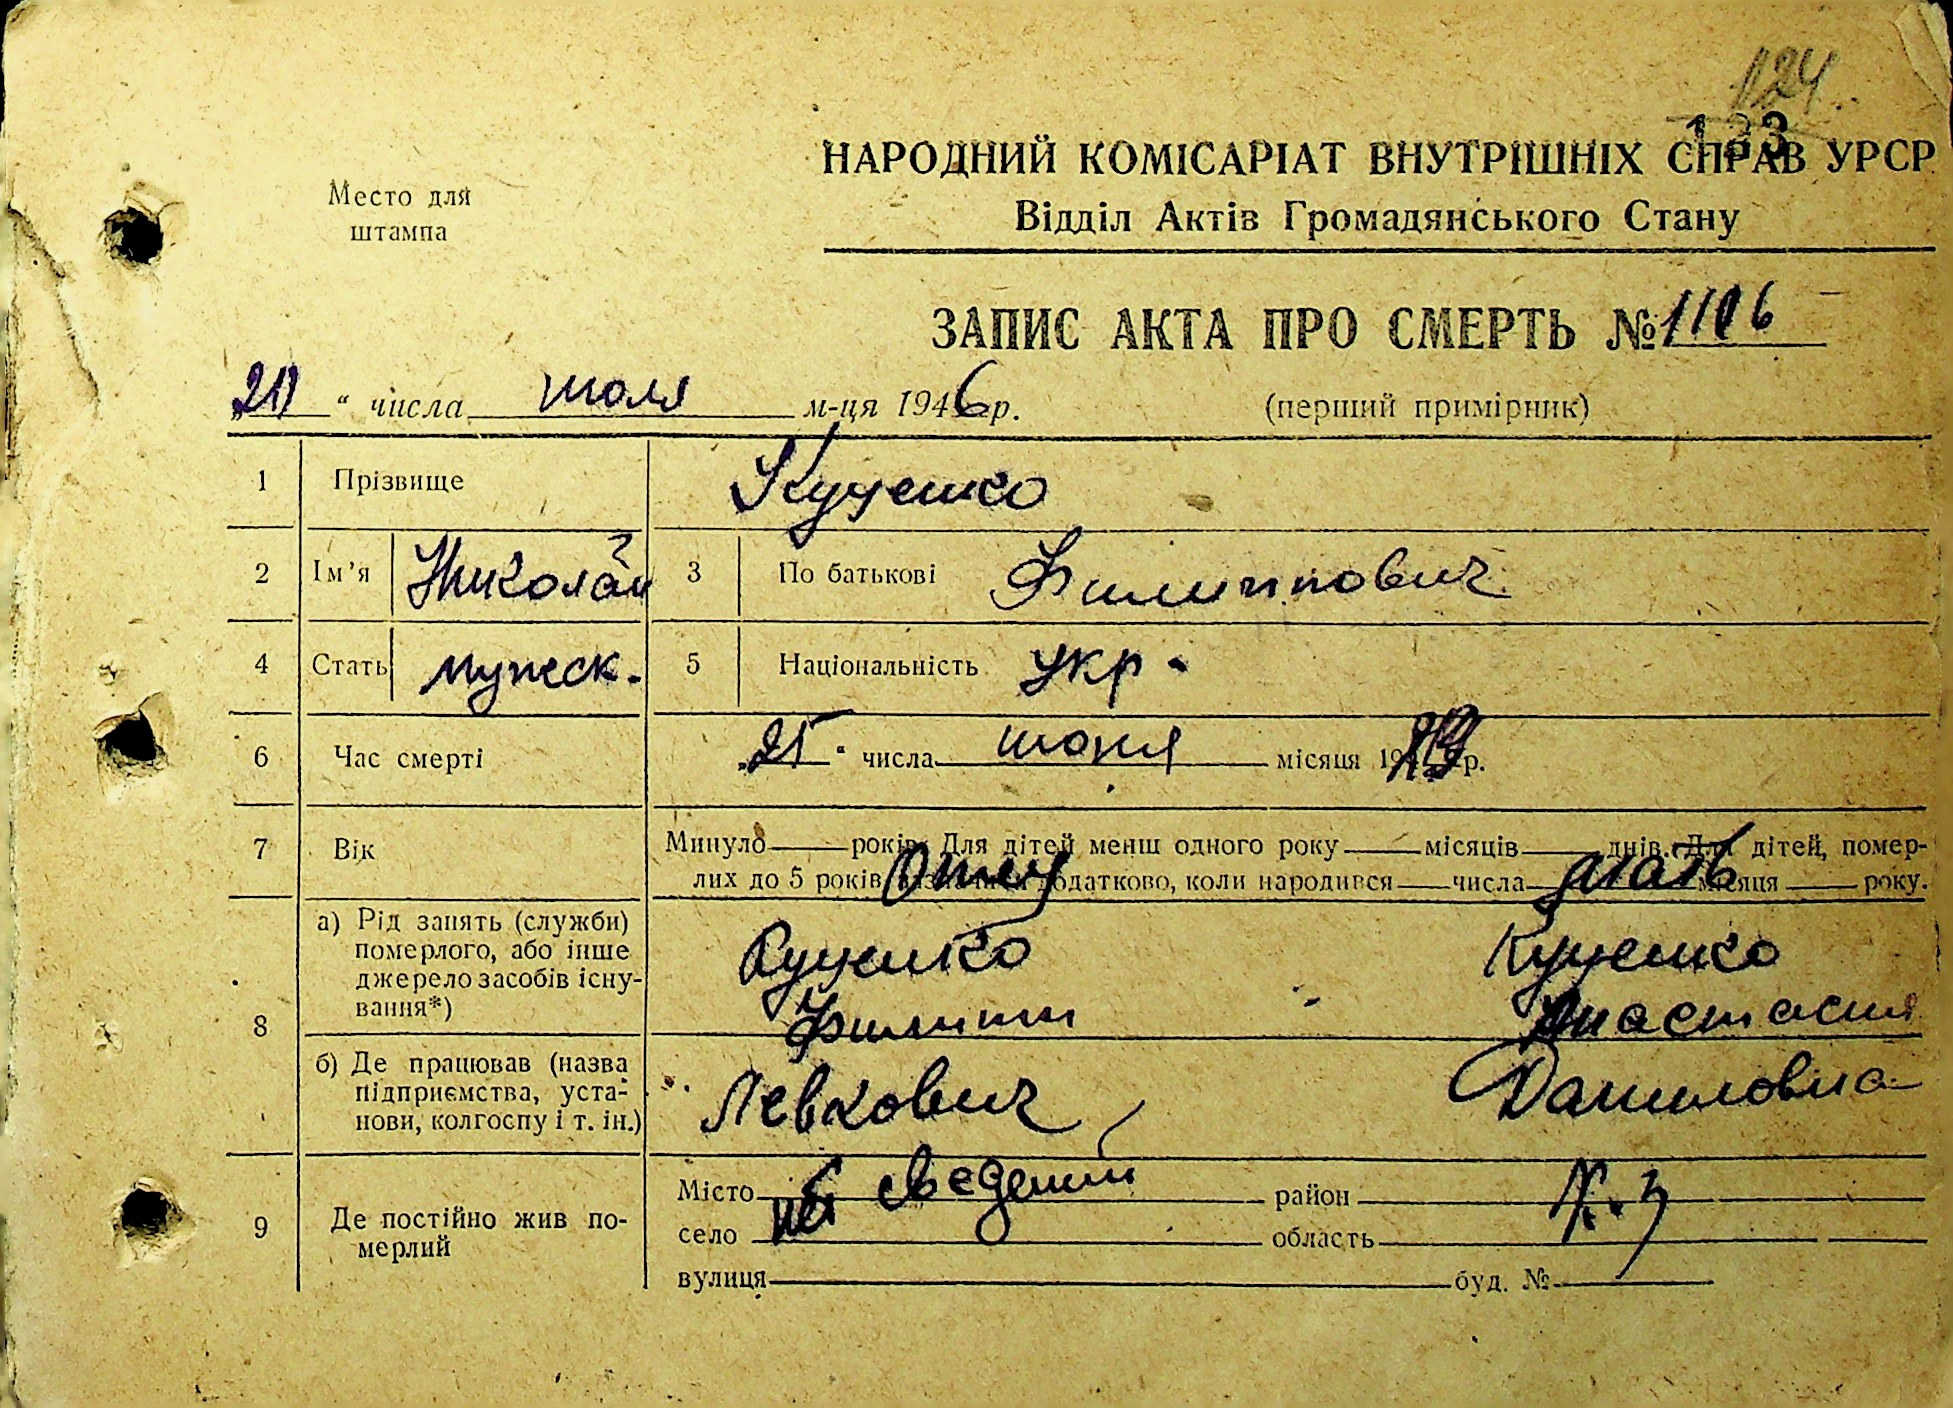 124
133
НАРОДНИЙ КОМІСАРІАТ ВНУТРІШНІХ СПРАВ УРСР
Место для штампа
Відділ Актів Громадянського Стану
ЗАПИС АКТА ПРО СМЕРТЬ № 1106
„20“ числа июля м-ця 1946 р. (перший примірник)
1 Прізвище Куценко
2 Ім’я Николай 3 По батькові Филиппович
4 Стать мужск. 5 Національність укр.
6 Час смерті „25“ числа июня місяця 19 р.
7 Вік Минуло років. Для дітей менш одного року місяців днів. Для дітей, помер-
лих до 5 років, додатково, коли народився числа місяця року.
Отец мать
8 а) Рід занять (служби)
померлого, або інше
джерело засобів існу-
вання*)
Куценко Куценко
Филипп Анастасия
б) Де працював (назва
підприємства, уста-
нови, колгоспу і т. ін.)
Левкович Даниловна
9 Де постійно жив по-
мерлий
Місто район
сведений
село область
вулиця буд. №